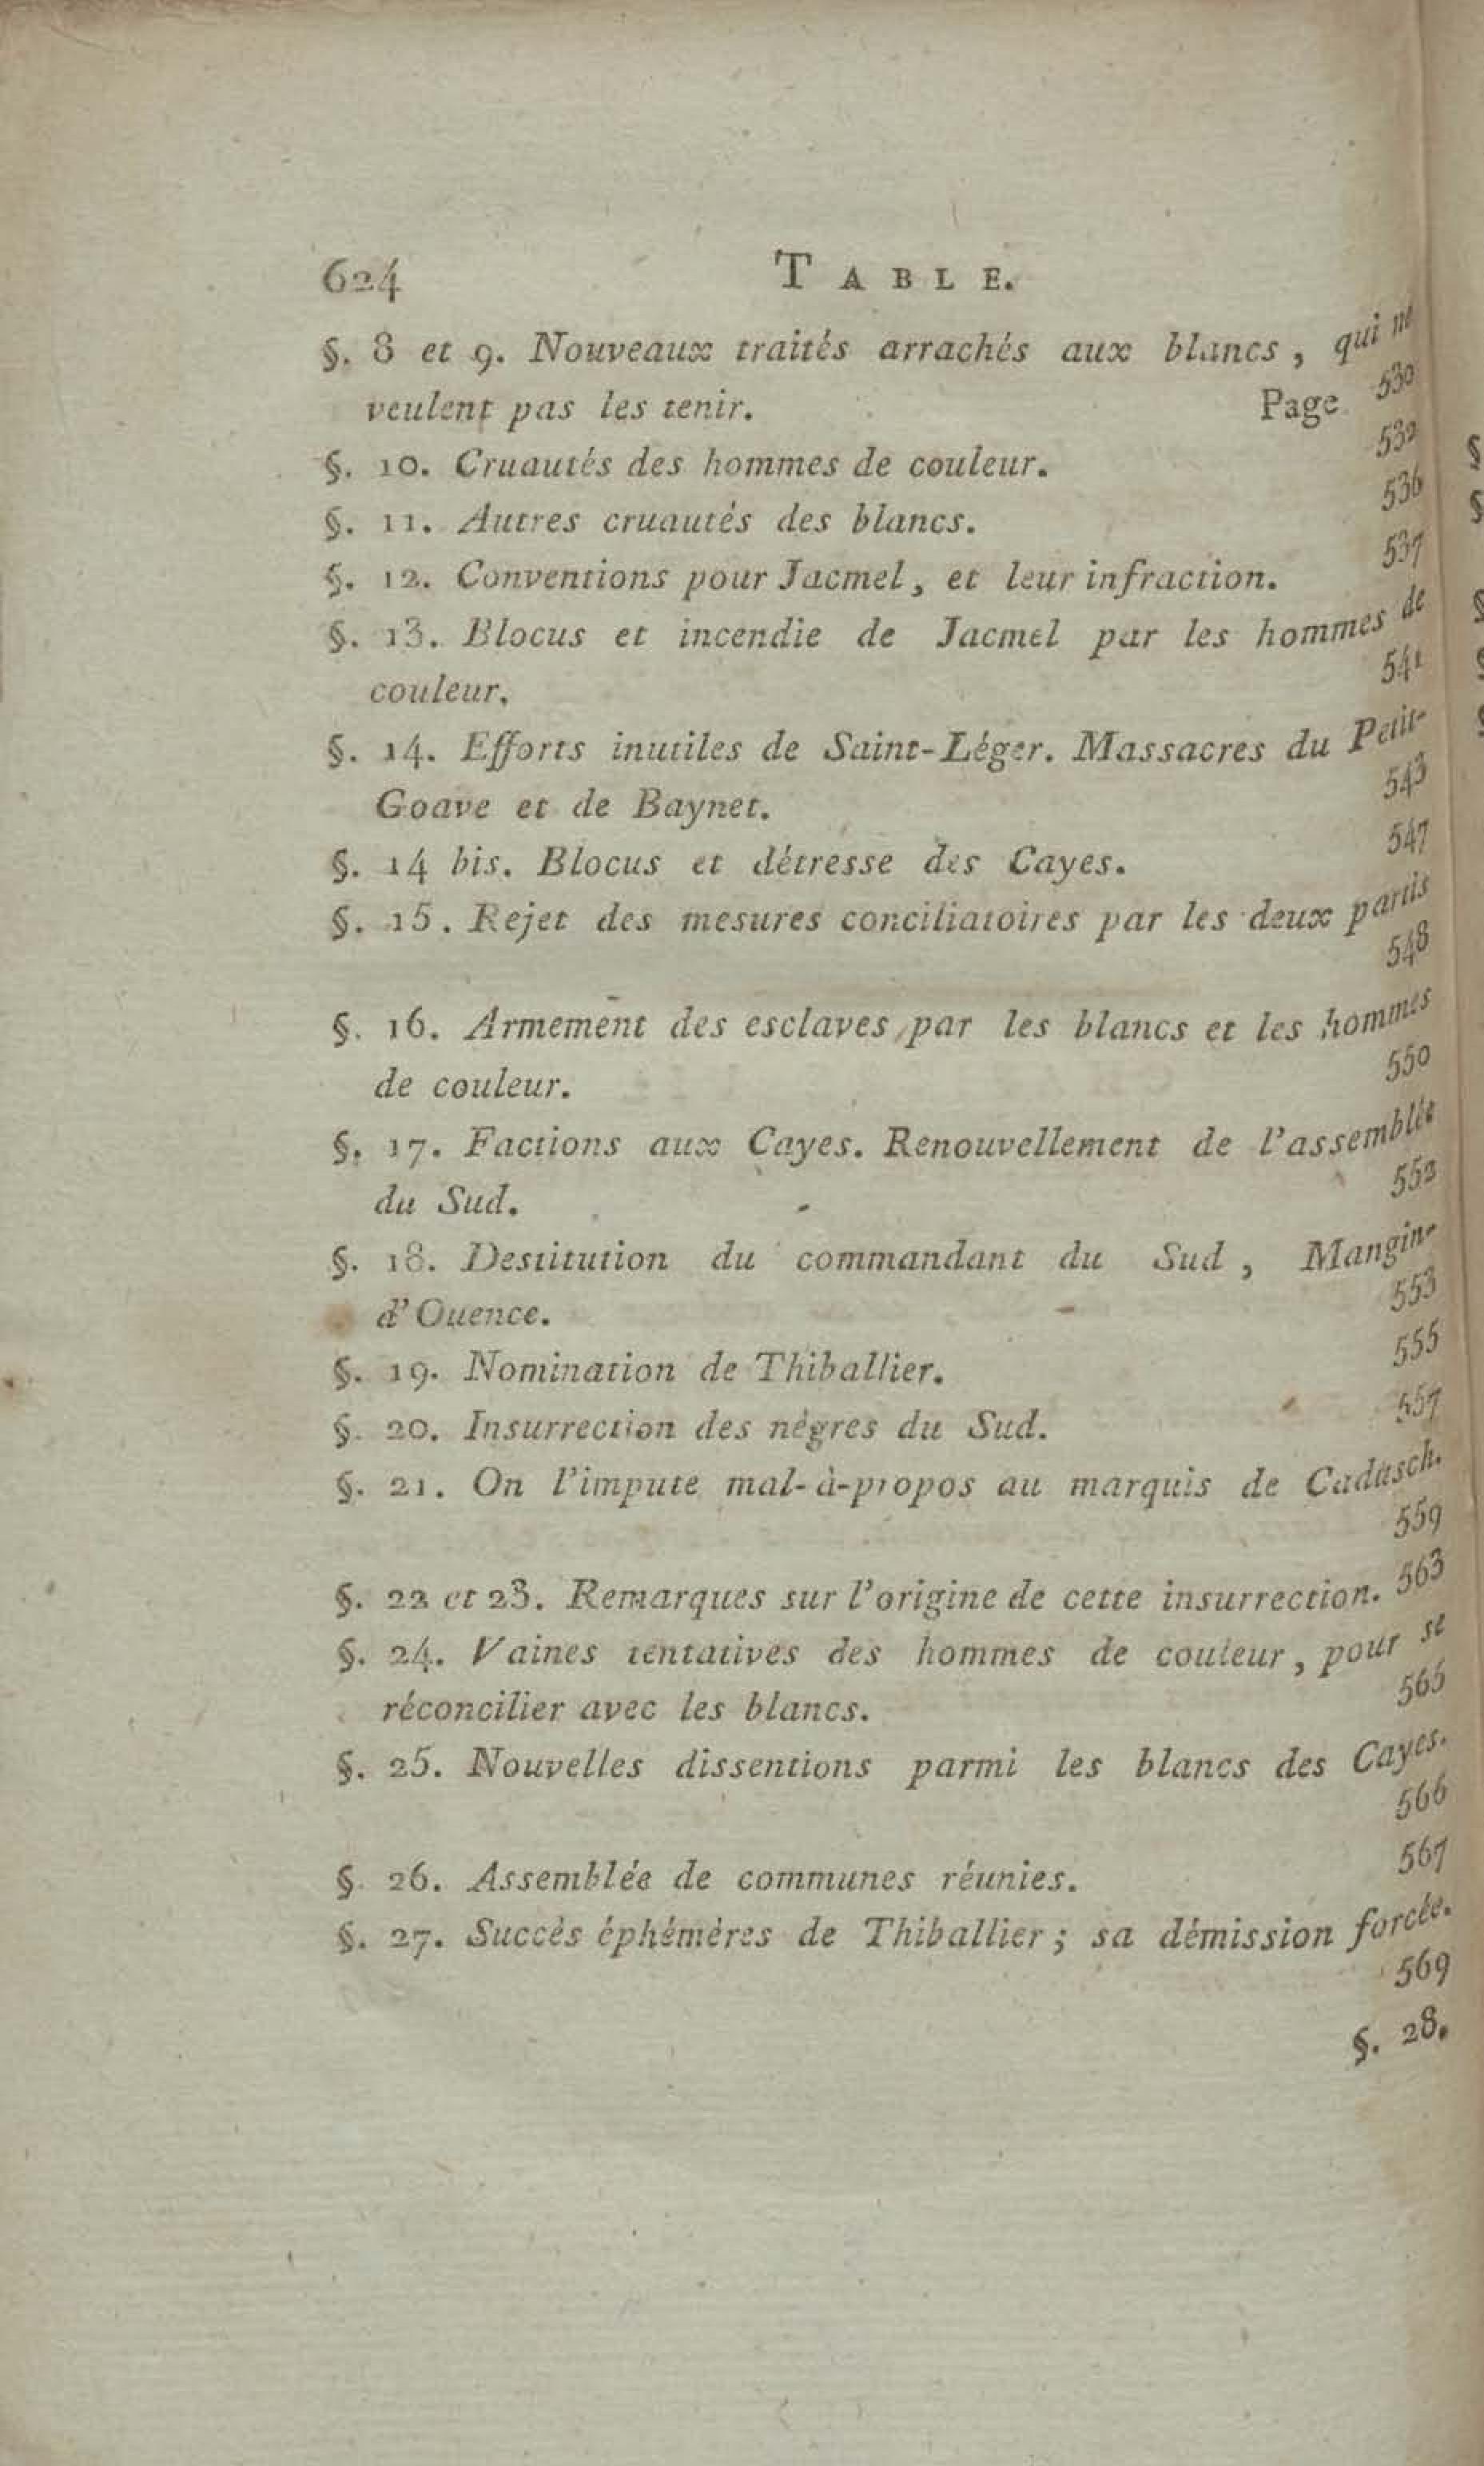 624 TABLE.
§. 8 et 9. Nouveaux traités arrachés aux blancs, qui ne
veulent pas les tenir. Page 530
§. 10. Cruautés des hommes de couleur. 532
§. 11. Autres cruautés des blancs. 536
§. 12. Conventions pour Jacmel, et leur infraction. 537
§. 13. Blocus et incendie de Jacmel par les hommes de
couleur. 541
§. 14. Efforts inutiles de Saint-Léger. Massacres du Petit-
Goave et de Baynet. 543
§. 14 bis. Blocus et détresse des Cayes. 547
§. 15. Rejet des mesures conciliatoires par les deux partis
548
§. 16. Armement des esclaves par les blancs et les hommes
de couleur. 550
§. 17. Factions aux Cayes. Renouvellement de l'assemblée
du Sud. 552
§. 18. Destitution du commandant du Sud, Mangin-
d'Ouence. 553
§. 19. Nomination de Thiballier. 555
§. 20. Insurrection des nègres du Sud. 557
§. 21. On l'impute mal-à-propos au marquis de Cadusch.
559
§. 22 et 23. Remarques sur l'origine de cette insurrection. 563
§. 24. Vaines tentatives des hommes de couleur, pour se
réconcilier avec les blancs. 565
§. 25. Nouvelles dissentions parmi les blancs des Cayes.
566
§. 26. Assemblée de communes réunies. 567
§. 27. Succès éphémères de Thiballier; sa démission forcée.
569
§. 28.